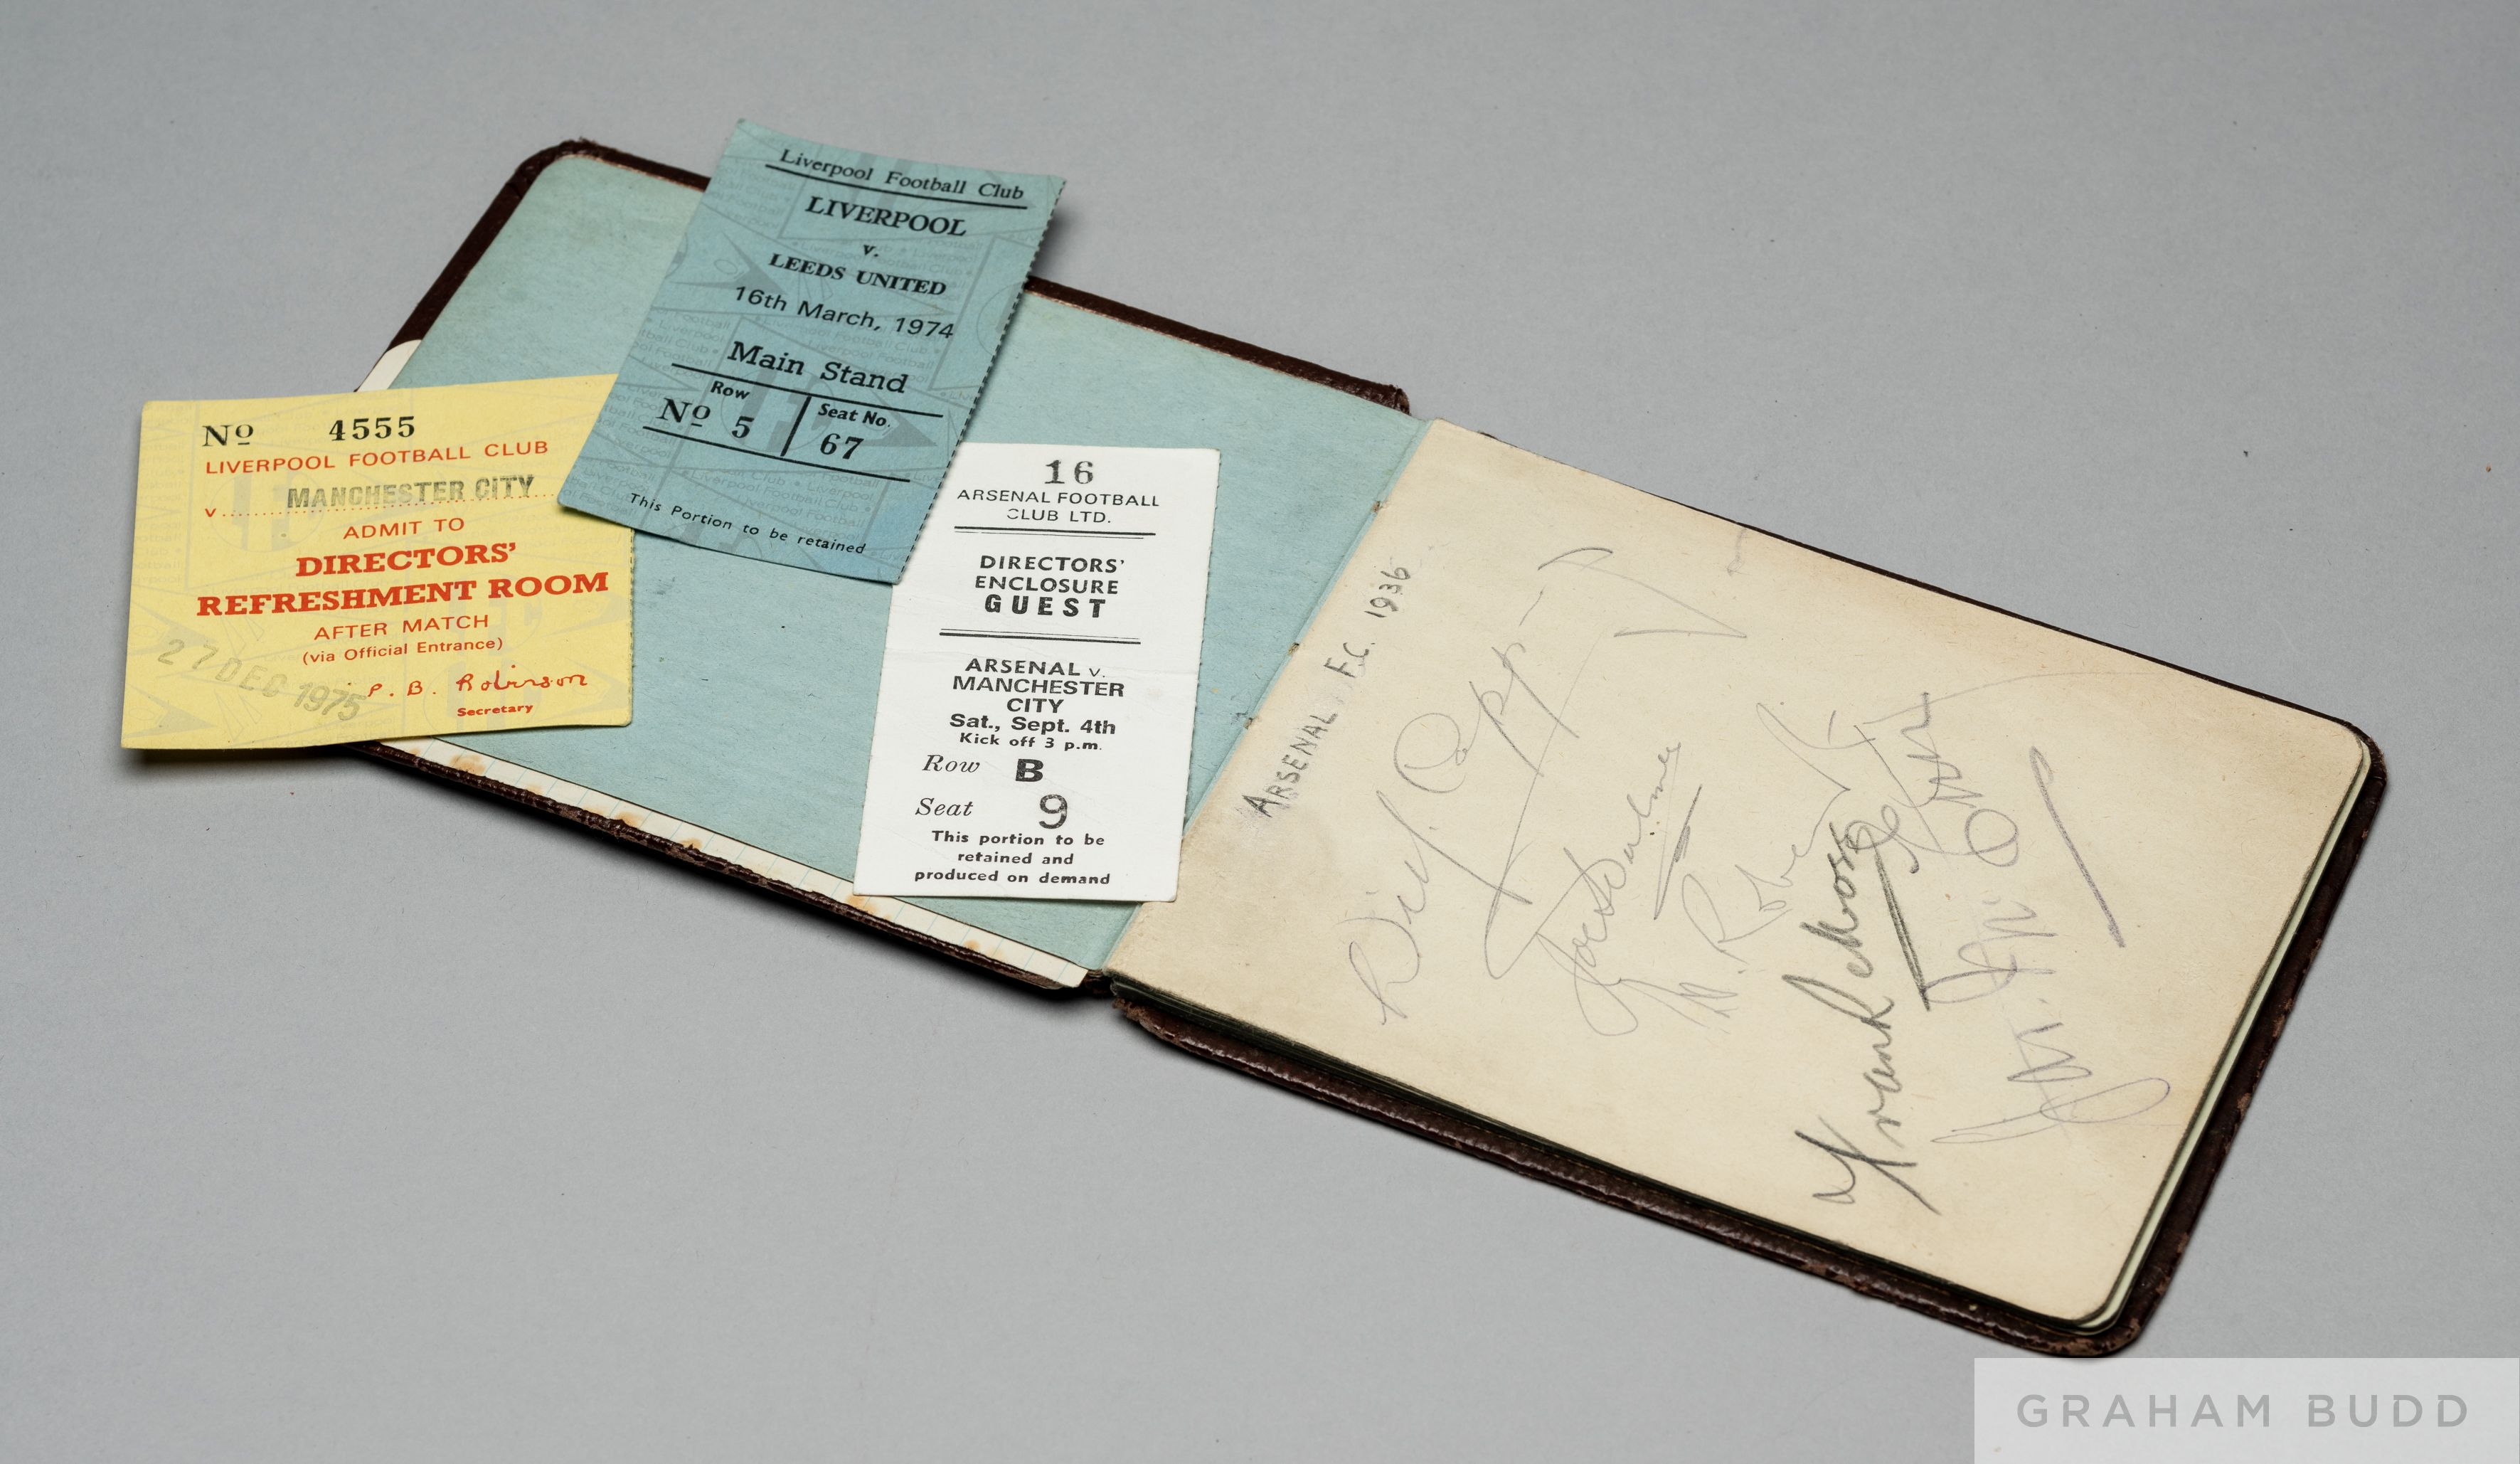 Nº 4555
LIVERPOOL FOOTBALL CLUB
v. MANCHESTER CITY
ADMIT TO
DIRECTORS'
REFRESHMENT ROOM
AFTER MATCH
(via Official Entrance)
P. B. Robinson
Secretary
27 DEC 1975
Liverpool Football Club
LIVERPOOL
v.
LEEDS UNITED
16th March, 1974
Main Stand
Row Seat No.
Nº 5 67
This Portion to be retained
16
ARSENAL FOOTBALL
CLUB LTD.
DIRECTORS'
ENCLOSURE
GUEST
ARSENAL v.
MANCHESTER
CITY
Sat., Sept. 4th
Kick off 3 p.m.
Row B
Seat 9
This portion to be
retained and
produced on demand
ARSENAL. F.C. 1936
Frank Moss
GRAHAM BUDD